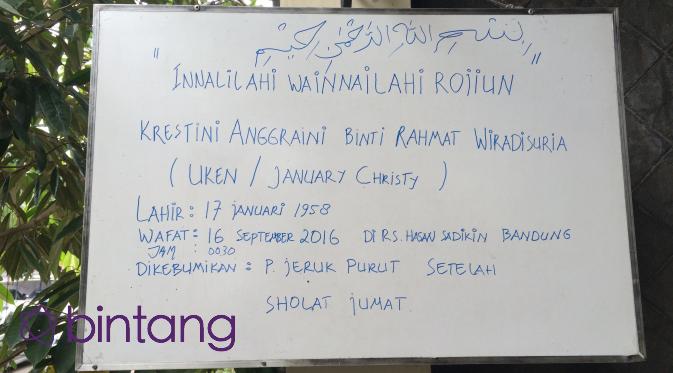 بسم الله الرحمن الرحيم
" INNALILAHI WAINNAILAHI ROJIUN "
KRESTINI ANGGRAINI BINTI RAHMAT WIRADISURIA
( UKEN / JANUARY CHRISTY )
LAHIR : 17 JANUARI 1958
WAFAT : 16 SEPTEMBER 2016 DI RS. HASAN SADIKIN BANDUNG
JAM : 0030
DIKEBUMIKAN : P. JERUK PURUT SETELAH
SHOLAT JUMAT.
bintang